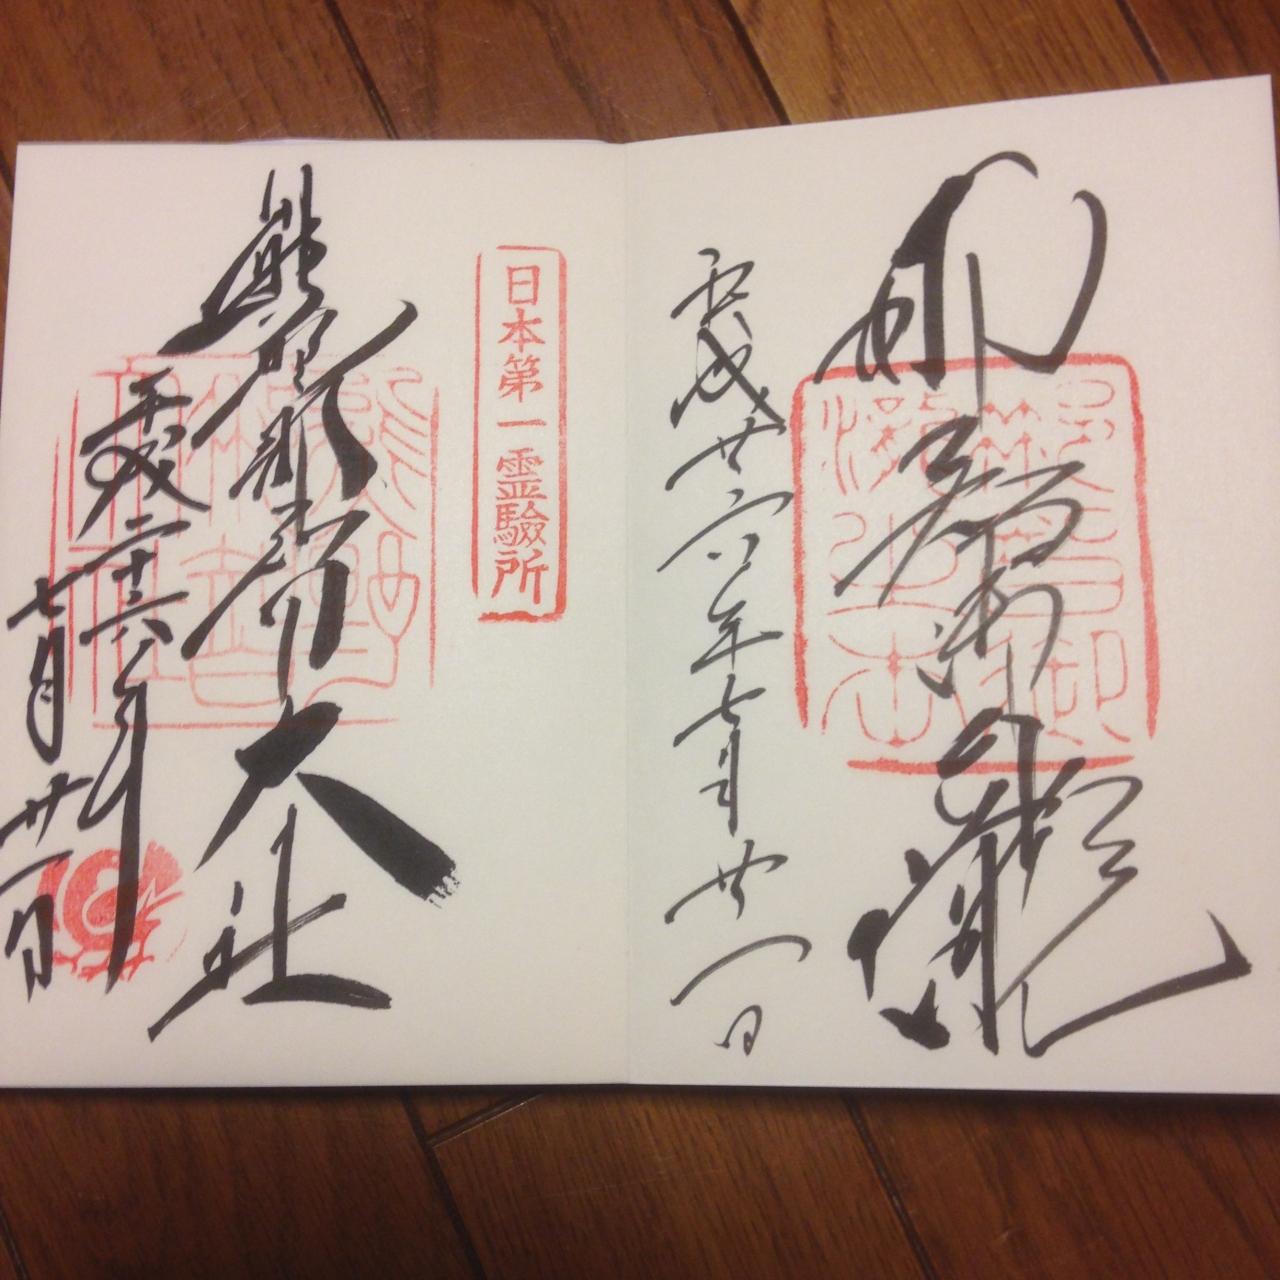 那智御瀧
平成廿六年七月廿一日
日本第一霊驗所
熊野那智大社
平成二十六年
七月廿一日